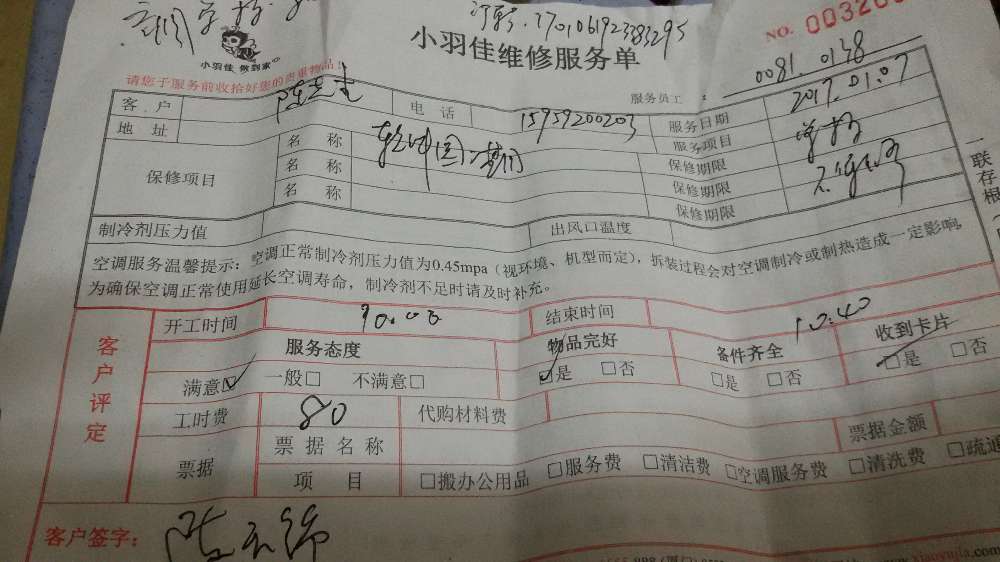 小羽佳 做到家
小羽佳维修服务单
NO. 00320
请您于服务前收拾好您的贵重物品!
服务员工: 0081. 0138
客户
电话 15959200203
服务日期 2017.01.07
地址
服务项目
保修项目
名称
保修期限
名称
保修期限
名称
保修期限
一联存根
制冷剂压力值
出风口温度
空调服务温馨提示:空调正常制冷剂压力值为0.45mpa(视环境、机型而定),拆装过程会对空调制冷或制热造成一定影响,
为确保空调正常使用延长空调寿命,制冷剂不足时请及时补充。
客户评定
开工时间
结束时间 10:40
服务态度
物品完好
备件齐全
收到卡片
满意☑ 一般□ 不满意□
☑是 □否
□是 □否
□是 □否
工时费 80
代购材料费
票据
票据名称
票据金额
项目
□搬办公用品 □服务费 □清洁费 □空调服务费 □清洗费 □疏通
客户签字: